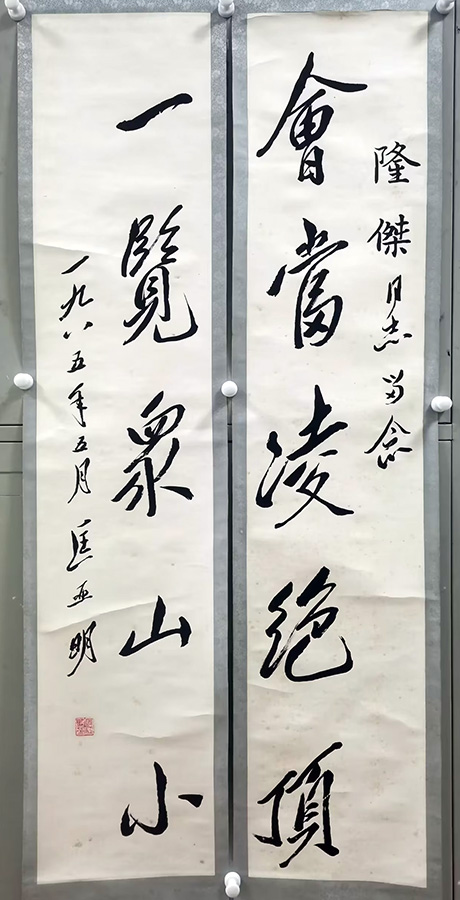 隆傑同志留念
會當凌絕頂
一覽眾山小
一九八五年五月匡亞明